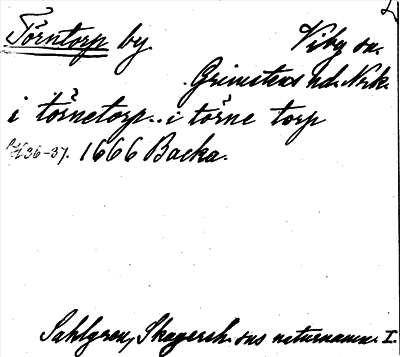 Törntorp by. Viby sn.
Grimstens hd. Nrk.
i törnetorp.. i törne torp
36-37. 1666 Backa.
Sahlgren, Skagersh. sns naturnamn. I.